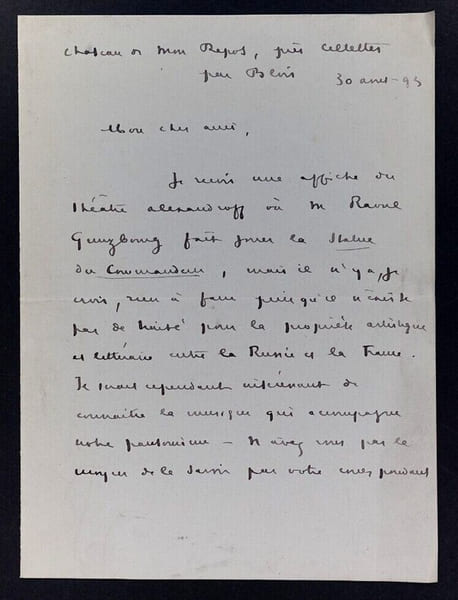 Chateau de Mon Repos, près Cellettes
par Blois 30 avril - 93
Mon cher ami,
Je reçois une affiche du
Théâtre Alexandroff où M Raoul
Gunzbourg fait jouer la Statue
du Commandeur, mais il n'y a, je
crois, rien à faire puisqu'il n'existe
pas de traité pour la propriété artistique
et littéraire entre la Russie et la France.
Il serait cependant intéressant de
connaitre la musique qui accompagne
notre pantomime - N'avez vous pas le
moyen de le savoir par votre correspondant